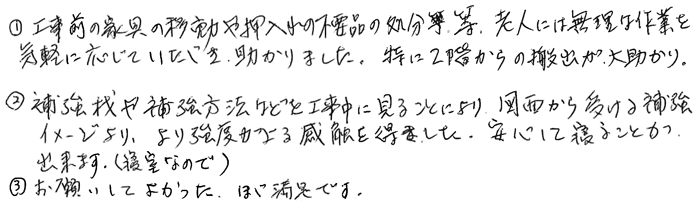 ① 工事前の家具の移動や押入れの不要品の処分等、老人には無理な作業を
気軽に応じていただき助かりました。特に2階からの搬出が大助かり。
② 補強材や補強方法などを工事中に見ることにより、図面から受ける補強
イメージより、より強度がある感触を得ました。安心して寝ることが
出来ます。(寝室なので)
③ お願いしてよかった。ほぼ満足です。